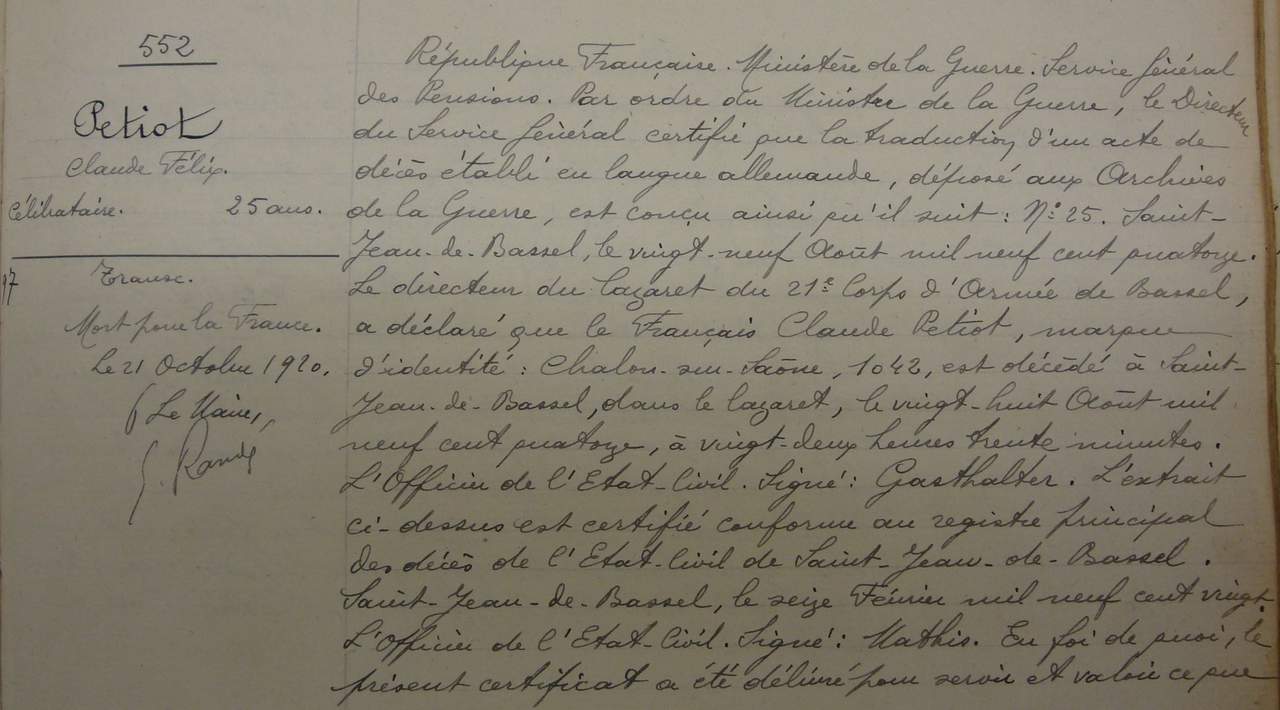 552
Petiot
Claude Félix.
Célibataire. 25 ans.
17
Transc.
Mort pour la France.
Le 21 Octobre 1920.
Le Maire,
République Française. Ministère de la Guerre. Service Général
des Pensions. Par ordre du Ministre de la Guerre, le Directeur
du Service Général certifie que la traduction d'un acte de
décès établi en langue allemande, déposé aux Archives
de la Guerre, est conçu ainsi qu'il suit : N° 25. Saint-
Jean-de-Bassel, le vingt-neuf Août mil neuf cent quatorze.
Le directeur du lazaret du 21e Corps d'Armée de Bassel,
a déclaré que le Français Claude Petiot, marque
d'identité : Chalon-sur-Saône, 1042, est décédé à Saint-
Jean-de-Bassel, dans le lazaret, le vingt-huit Août mil
neuf cent quatorze, à vingt-deux heures trente minutes.
L'Officier de l'Etat-Civil. Signé : Gasthalter. L'extrait
ci-dessus est certifié conforme au registre principal
des décès de l'Etat-Civil de Saint-Jean-de-Bassel.
Saint-Jean-de-Bassel, le seize Février mil neuf cent vingt.
L'Officier de l'Etat-Civil. Signé : Mathis. En foi de quoi, le
présent certificat a été délivré pour servir et valoir ce que